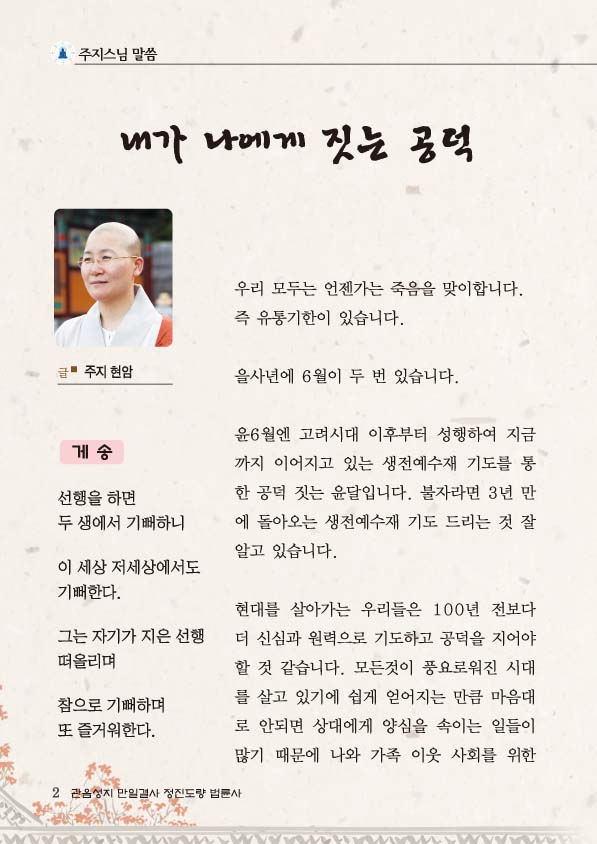 주지스님 말씀
내가 나에게 짓는 공덕
글 주지 현암
게 송
선행을 하면
두 생에서 기뻐하니
이 세상 저세상에서도
기뻐한다.
그는 자기가 지은 선행
떠올리며
참으로 기뻐하며
또 즐거워한다.
우리 모두는 언젠가는 죽음을 맞이합니다.
즉 유통기한이 있습니다.
을사년에 6월이 두 번 있습니다.
윤6월엔 고려시대 이후부터 성행하여 지금
까지 이어지고 있는 생전예수재 기도를 통
한 공덕 짓는 윤달입니다. 불자라면 3년 만
에 돌아오는 생전예수재 기도 드리는 것 잘
알고 있습니다.
현대를 살아가는 우리들은 100년 전보다
더 신심과 원력으로 기도하고 공덕을 지어야
할 것 같습니다. 모든것이 풍요로워진 시대
를 살고 있기에 쉽게 얻어지는 만큼 마음대
로 안되면 상대에게 양심을 속이는 일들이
많기 때문에 나와 가족 이웃 사회를 위한
2 관음성지 만일결사 정진도량 법륜사